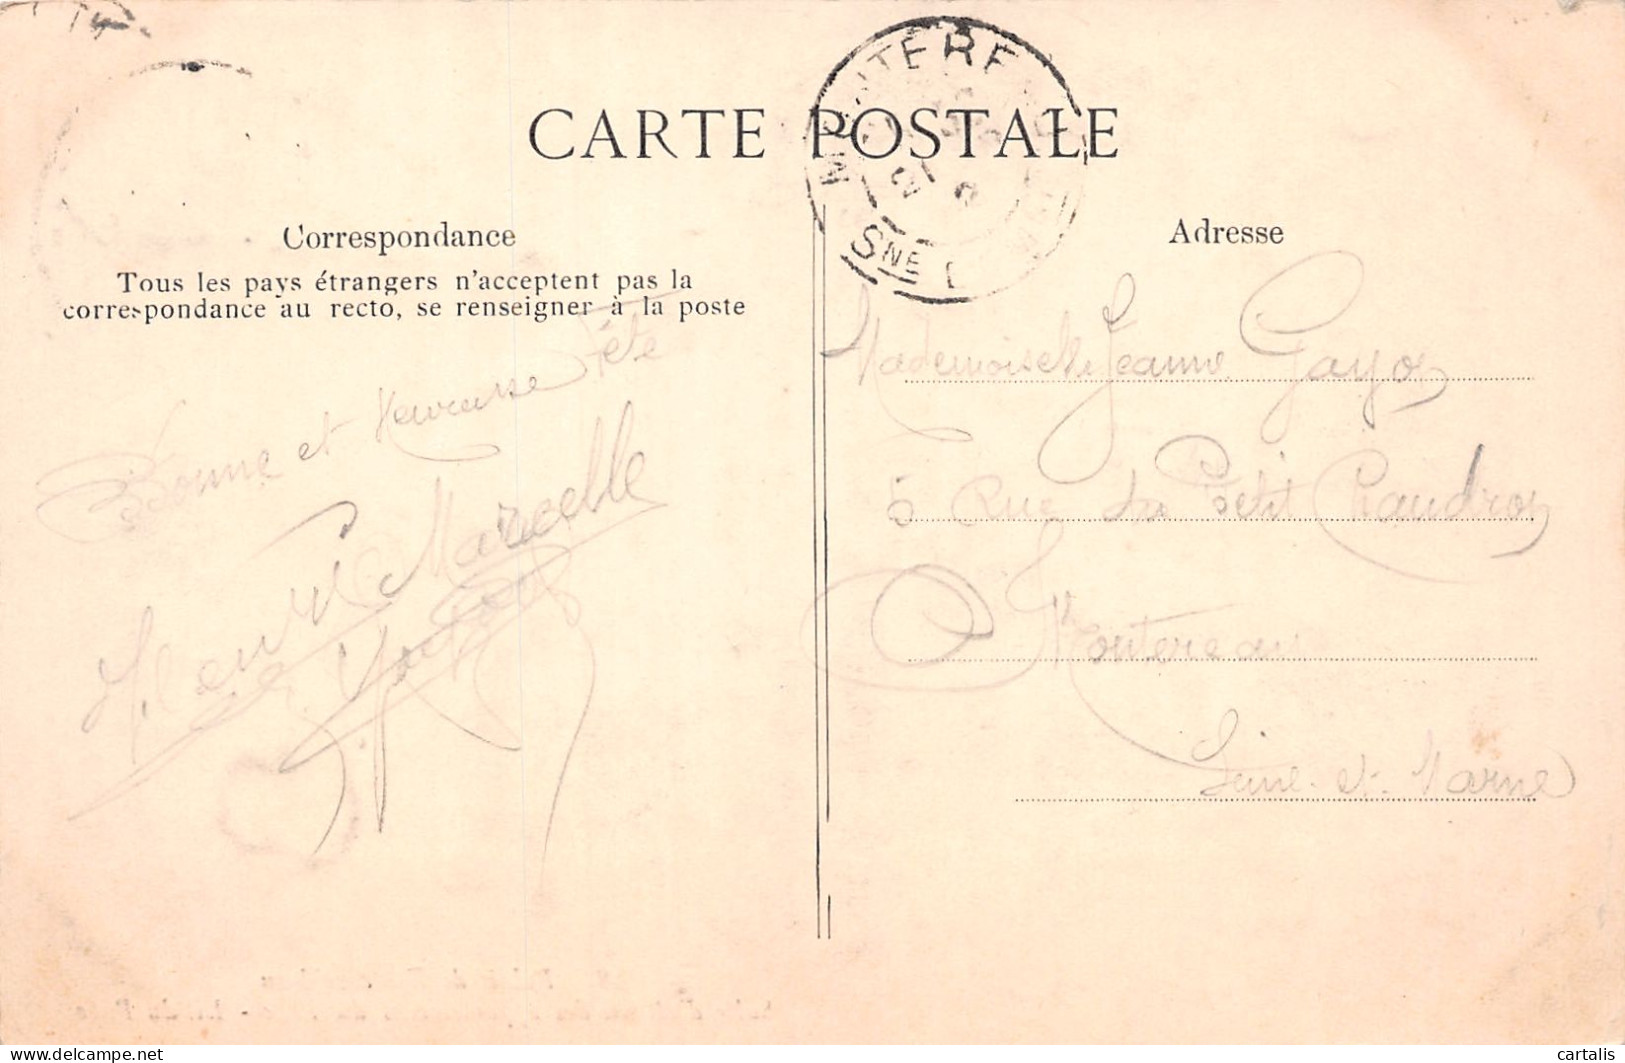 CARTE POSTALE
Correspondance
Tous les pays étrangers n'acceptent pas la
correspondance au recto, se renseigner à la poste
Bonne et Heureuse Fête
Henri Marcelle
Adresse
Mademoiselle Jeanne Gayot
5 Rue du Petit Chaudron
Montereau
Seine-et-Marne
MONTEREAU
SNE
cartalis
delcampe.net